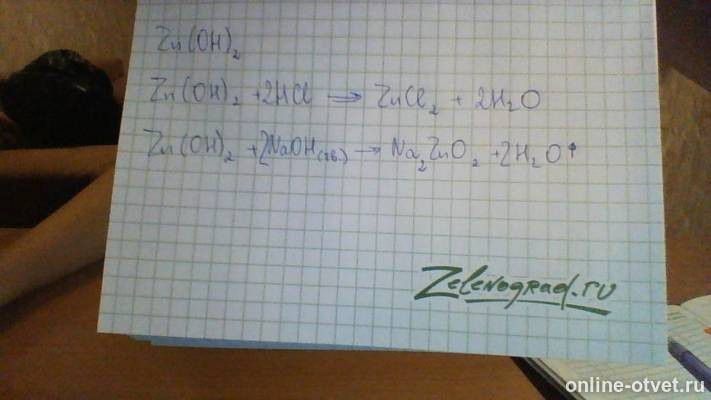 Zn(OH)₂
Zn(OH)₂ + 2HCl → ZnCl₂ + 2H₂O
Zn(OH)₂ + 2NaOH(тв.) → Na₂ZnO₂ + 2H₂O↑
Zelenograd.ru
online-otvet.ru